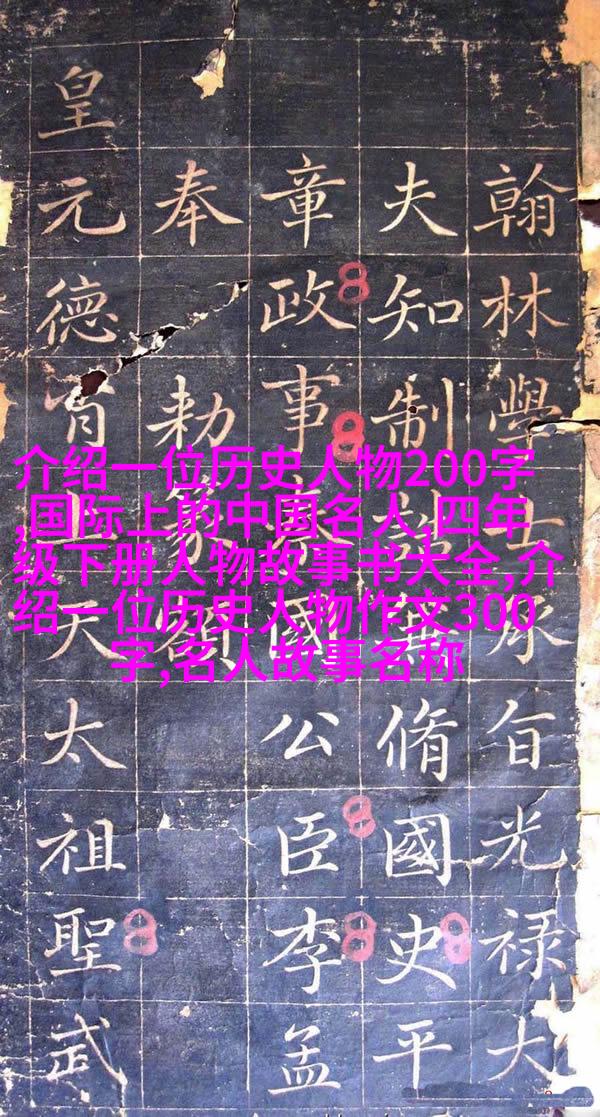 介绍一位历史人物200字
,国际上的中国名人,四年
级下册人物故事书大全,介
绍一位历史人物作文300
字,名人故事名称
翰林學士承旨光禄大
夫知制脩國史平
章政事國公臣李孟
奉勑篆
皇元德天太祖聖武